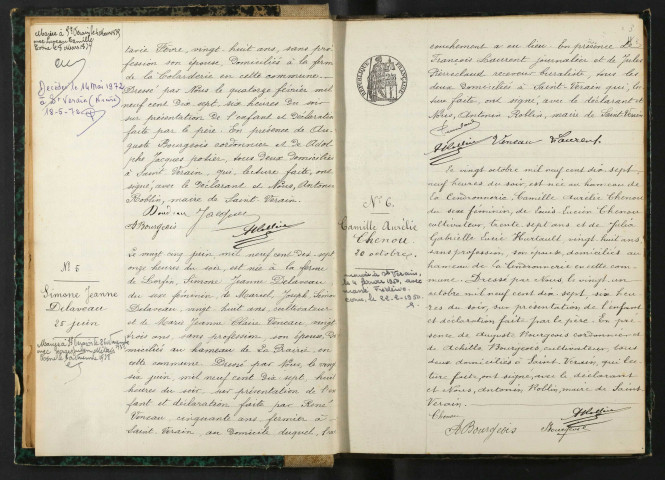 tavie Fèvre, vingt huit ans, sans pro
fession son épouse, domiciliés à la ferme
de la Colarderie en cette commune.
Dressé par Nous le quatorze février mil
neuf cent dix sept, six heures du soir
sur présentation de l'enfant et déclaration
faite par le père. En présence de Au
guste Bourgeois cordonnier et de Adol
phe Jacques potier, tous deux domiciliés
à Saint Verain, qui, lecture faite, ont
signé, avec le déclarant et Nous, Antonin
Roblin, maire de Saint Verain.
Jacques
A Bourgeois
Décédée le 14 Mai 1972
à St Verain (Nièvre)
18-5-72
N° 5
Simone Jeanne
Delaveau
25 juin
Le vingt cinq juin mil neuf cent dix sept
onze heures du soir, est née à la ferme
de Simone Jeanne Delaveau
du sexe féminin, de Marcel Joseph Simon
Delaveau vingt huit ans, cultivateur
et de Marie Jeanne Claire Veneau, vingt
trois ans, sans profession, son épouse, do
miciliés au hameau de La Prairie en
cette commune. Dressé par Nous, le vingt
six juin, mil neuf cent dix sept, huit
heures du soir, sur présentation de l'en
fant et déclaration faite par René
Veneau cinquante ans, fermier à
Saint Verain, au domicile duquel l'ac
couchement a eu lieu. En présence de
François Laurent, journalier et de Jules
receveur buraliste, tous les
deux domiciliés à Saint Verain qui, lec
ture faite, ont signé, avec le déclarant et
Nous, Antonin Roblin, maire de Saint Verain
Veneau Laurent
RÉPUBLIQUE FRANÇAISE
N° 6.
Camille Aurélie
Chenou
20 octobre
Le vingt octobre mil neuf cent dix sept,
neuf heures du soir, est née au hameau de
la Cendronnerie Camille Aurélie Chenou
du sexe féminin, de Louis Lucien Chenou
cultivateur, trente sept ans et de Julia
Gabrielle Lucie Hurtault vingt huit ans,
sans profession, son épouse, domiciliés au
hameau de la Cendronnerie en cette com
mune. Dressé par Nous, le vingt un
octobre mil neuf cent dix sept, six heu
res du soir, sur présentation de l'enfant
et déclaration faite par le père. En pré
sence de Auguste Bourgeois cordonnier et
de Achille Bourgeois, cultivateur, tous
deux domiciliés à Saint Verain, qui, lec
ture faite, ont signé, avec le déclarant
et Nous, Antonin Roblin, maire de Saint
Verain.
Chenou
A Bourgeois Bourgeois